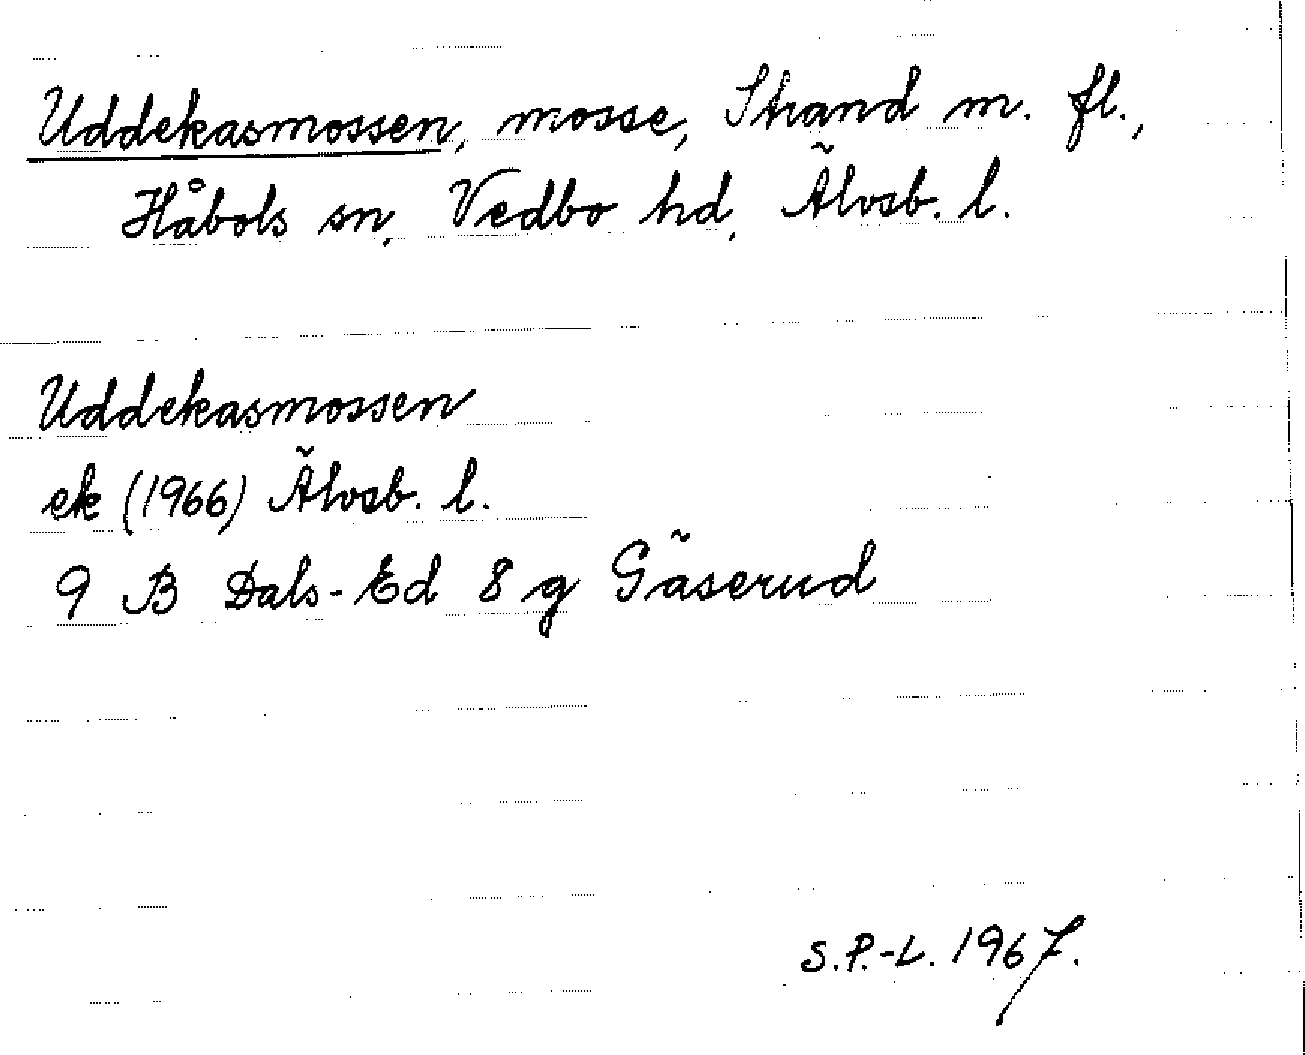 Uddekasmossen, mosse, Strand m. fl.,
Håbols sn, Vedbo hd, Älvsb. l.
Uddekasmossen
ek (1966) Älvsb. l.
9 B Dals-Ed 8 g Gäserud
S.P.-L. 1967.